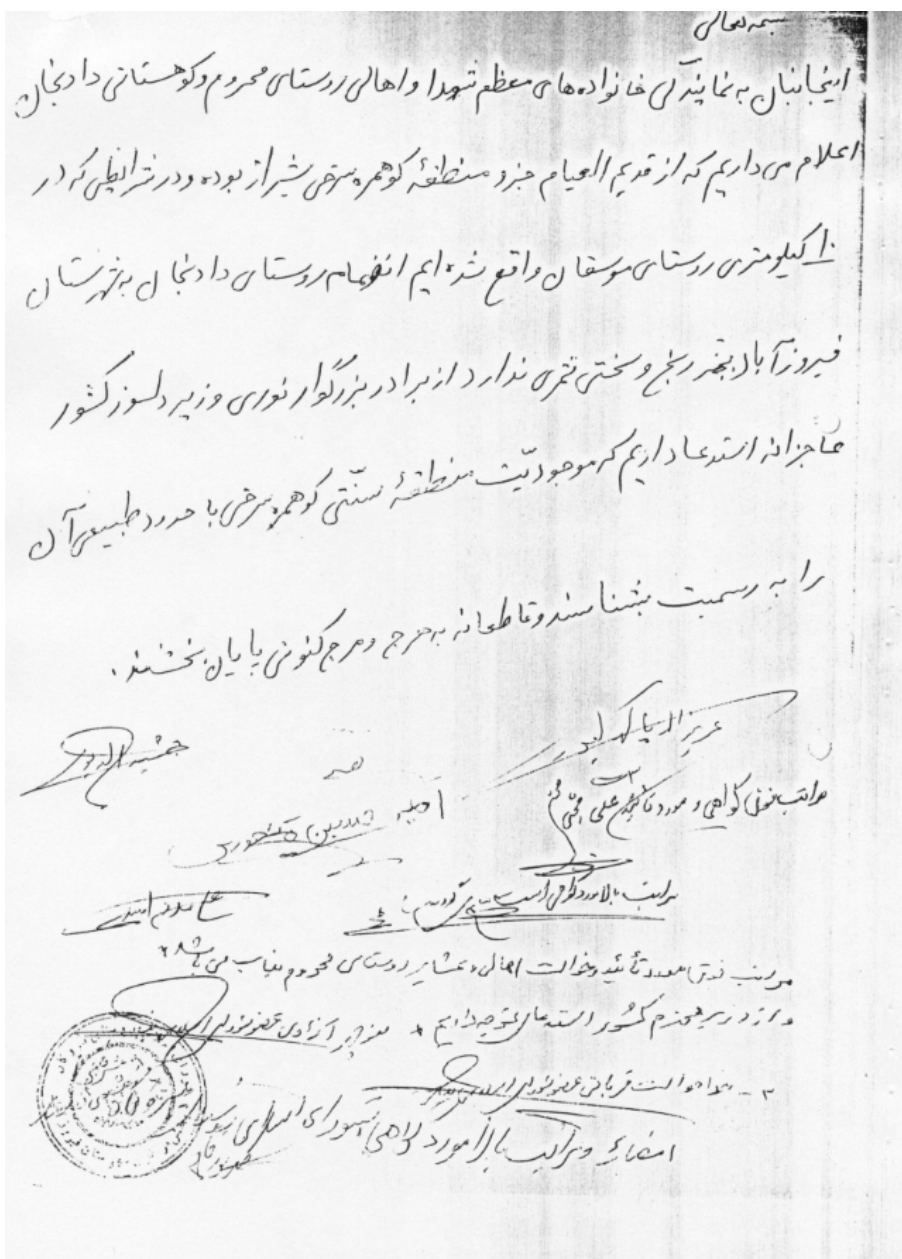 بسمه تعالی
اینجانبان به نمایندگی خانواده‌های معظم شهدا و اهالی روستای محروم و کوهستانی دادنجان
اعلام می داریم که از قدیم الایام جزو منطقهٔ کوهمره سرخی شیراز بوده و در شرایطی که در
۱۰ کیلومتری روستای موسقان واقع شده ایم انضمام روستای دادنجان به شهرستان
فیروزآباد بجز رنج و سختی ثمری ندارد از برادر بزرگوار نوری وزیر دلسوز کشور
عاجزانه استدعا داریم که موجودیّت منطقهٔ سنّتی کوهمره سرخی با حدود طبیعی آن
را به رسمیت بشناسند و قاطعانه به هرج و مرج کنونی پایان بخشند.
مراتب فوق گواهی و مورد تأئید است علی
حسین
مراتب بالا مورد گواهی است
مراتب فوق مورد تأئید و خواست اهالی و عشایر روستای محروم می باشد
و از وزیر محترم کشور استدعای توجه داریم منوچهر آزادی عضو شورای اسلامی
۳ - قربانی عضو شورای اسلامی
امضاء و مراتب بالا مورد گواهی شورای اسلامی